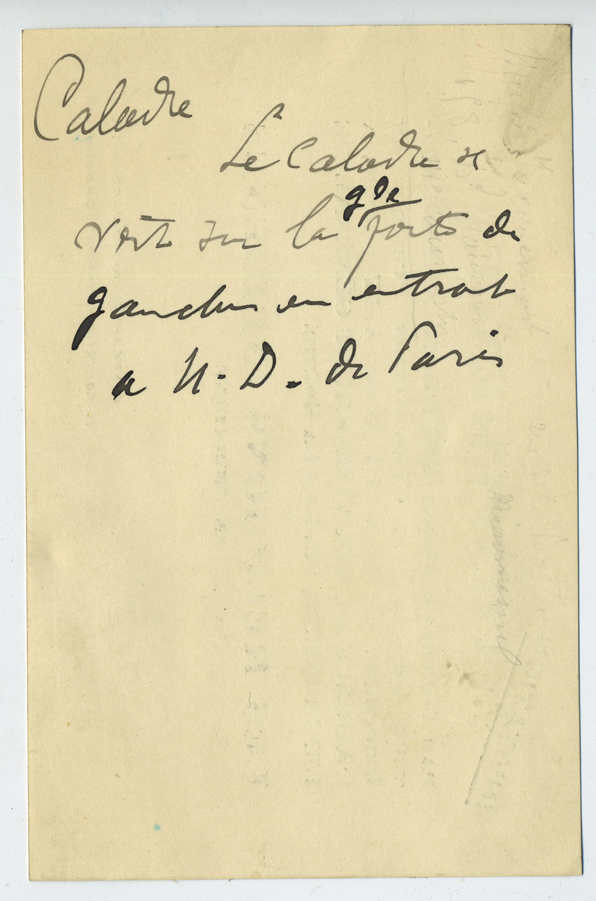 Caladre
Le Caladre se
voit sur la gde porte de
gauche en entrant
a N. D. de Paris